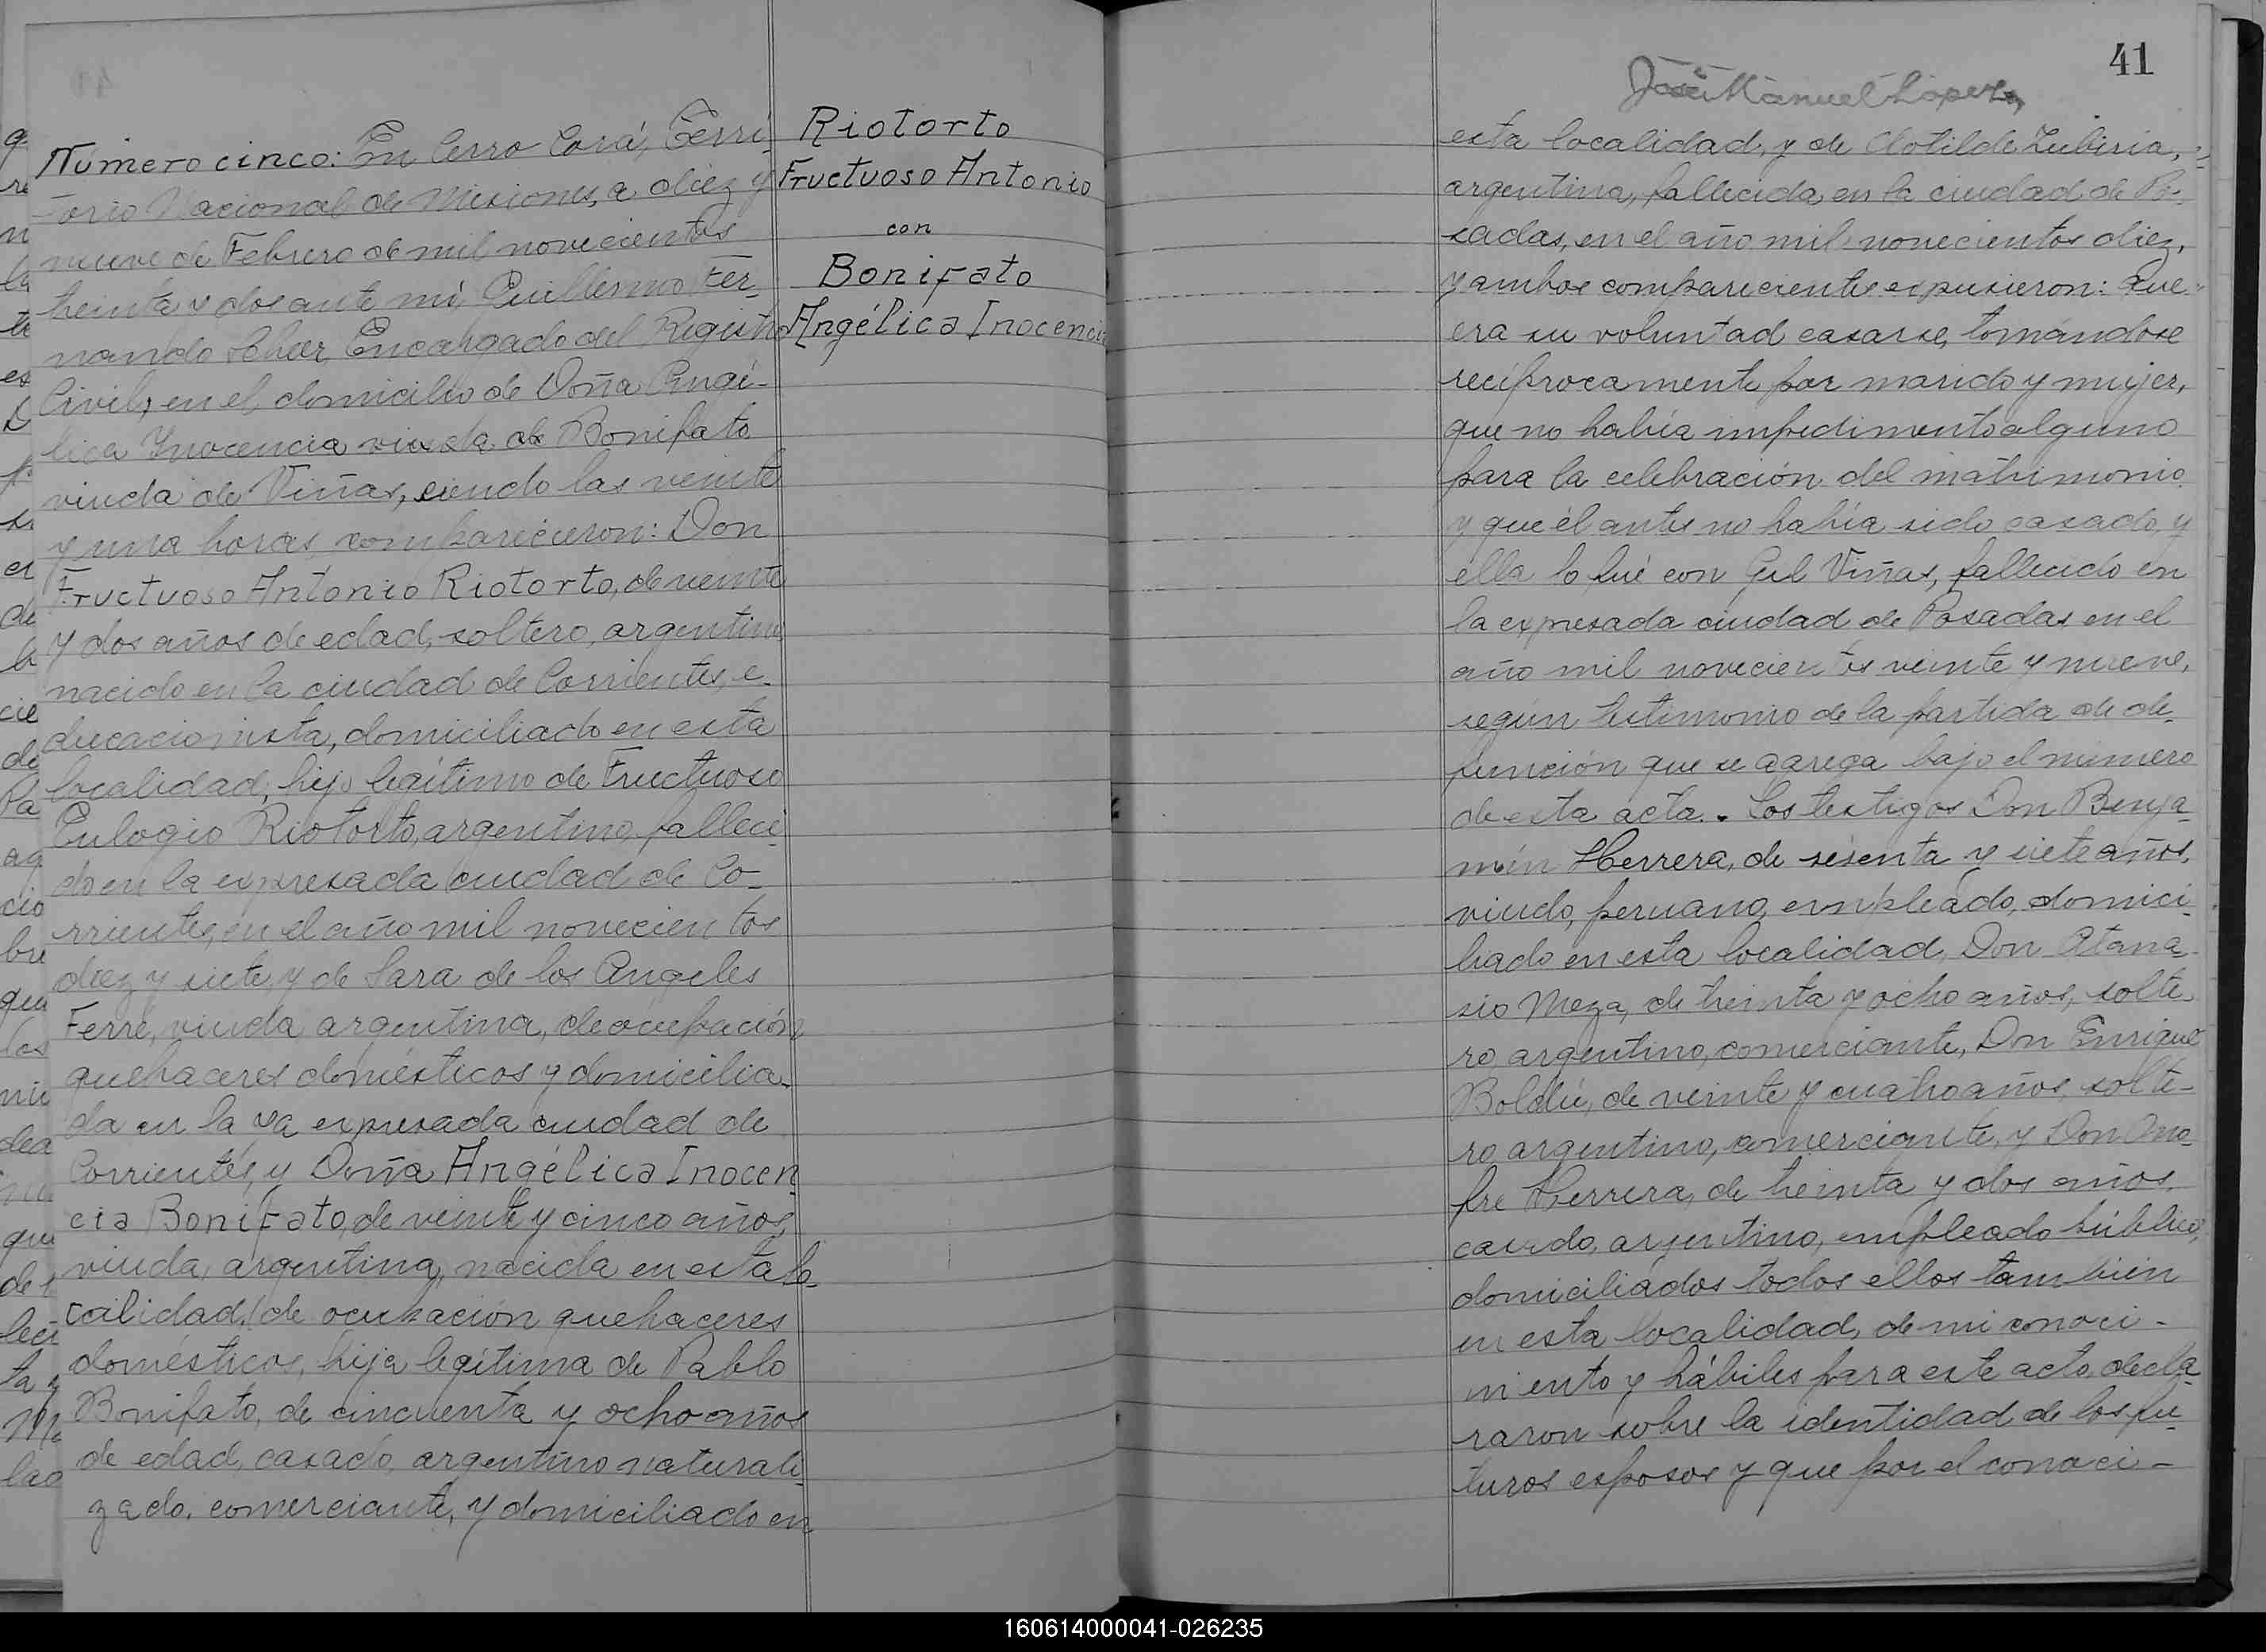 Número cinco: En Cerro Corá, Terri-
torio Nacional de Misiones, a diez y
nueve de Febrero de mil novecientos
treinta y dos ante mí, Guillermo Fer-
nando Encargado del Registro
Civil, en el domicilio de Doña Angé-
lica Ynocencia viuda de Bonifato
viuda de Viñas, siendo las veinte
y una horas, comparecieron: Don
Fructuoso Antonio Riotorto, de veinte
y dos años de edad, soltero, argentino
nacido en la ciudad de Corrientes, e-
ducacionista, domiciliado en esta
localidad, hijo legítimo de Fructuoso
Eulogio Riotorto, argentino, falleci-
do en la expresada ciudad de Co-
rrientes, en el año mil novecientos
diez y siete, y de Sara de los Angeles
Ferré, viuda, argentina, de ocupación
quehaceres domésticos y domicilia-
da en la ya expresada ciudad de
Corrientes, y Doña Angélica Inocen
cia Bonifato, de veinte y cinco años,
viuda, argentina, nacida en esta lo-
calidad, de ocupación quehaceres
domésticos, hija legítima de Pablo
Bonifato, de cincuenta y ocho años
de edad, casado, argentino naturali-
zado, comerciante, y domiciliado en
Riotorto
Fructuoso Antonio
con
Bonifato
Angélica Inocencia
41
José Manuel Lopez
esta localidad, y de Clotilde Zubiria,
argentina, fallecida en la ciudad de Po-
sadas, en el año mil novecientos diez,
y ambos comparecientes expusieron: Que
era su voluntad casarse, tomándose
recíprocamente por marido y mujer,
que no había impedimento alguno
para la celebración del matrimonio
y que él antes no había sido casado, y
ella lo fué con Gil Viñas, fallecido en
la expresada ciudad de Posadas en el
año mil novecientos veinte y nueve,
según testimonio de la partida de de-
función que se agrega bajo el número
de esta acta. Los testigos Don Benja-
mín Herrera, de sesenta y siete años,
viudo, peruano, empleado, domici-
liado en esta localidad, Don Atana-
sio Meza, de treinta y ocho años, solte-
ro, argentino, comerciante, Don Enrique
Boldú, de veinte y cuatro años, solte-
ro, argentino, comerciante, y Don Ono-
fre Herrera, de treinta y dos años,
casado, argentino, empleado público,
domiciliados todos ellos tambien
en esta localidad, de mi conoci-
miento y hábiles para este acto, decla-
raron sobre la identidad de los fu-
turos esposos y que por el conoci-
160614000041-026235